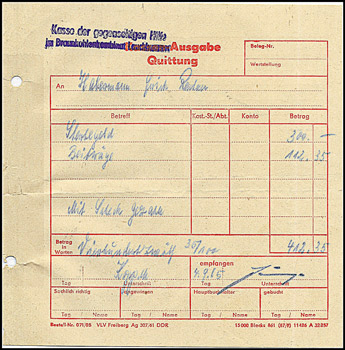 Kasse der gegenseitigen Hilfe
im Braunkohlenkombinat Lauchhammer
Ausgabe
Quittung
Beleg-Nr.
Wertstellung
An
Betreff Kost.-St./Abt. Konto Betrag
Sterbegeld 300,—
Beiträge 112,35
Mit Scheck
Betrag in Worten Vierhundertzwölf 35/100 412,35
empfangen
4.9.65
Tag Unterschrift Tag Unterschrift
Sachlich richtig Angewiesen Hauptbuchhalter gebucht
Tag Tag Tag
Bestell-Nr. 071/05 VLV Freiberg Ag 307/61 DDR 15000 Blocks 861 (87/9) 11426 A 33257